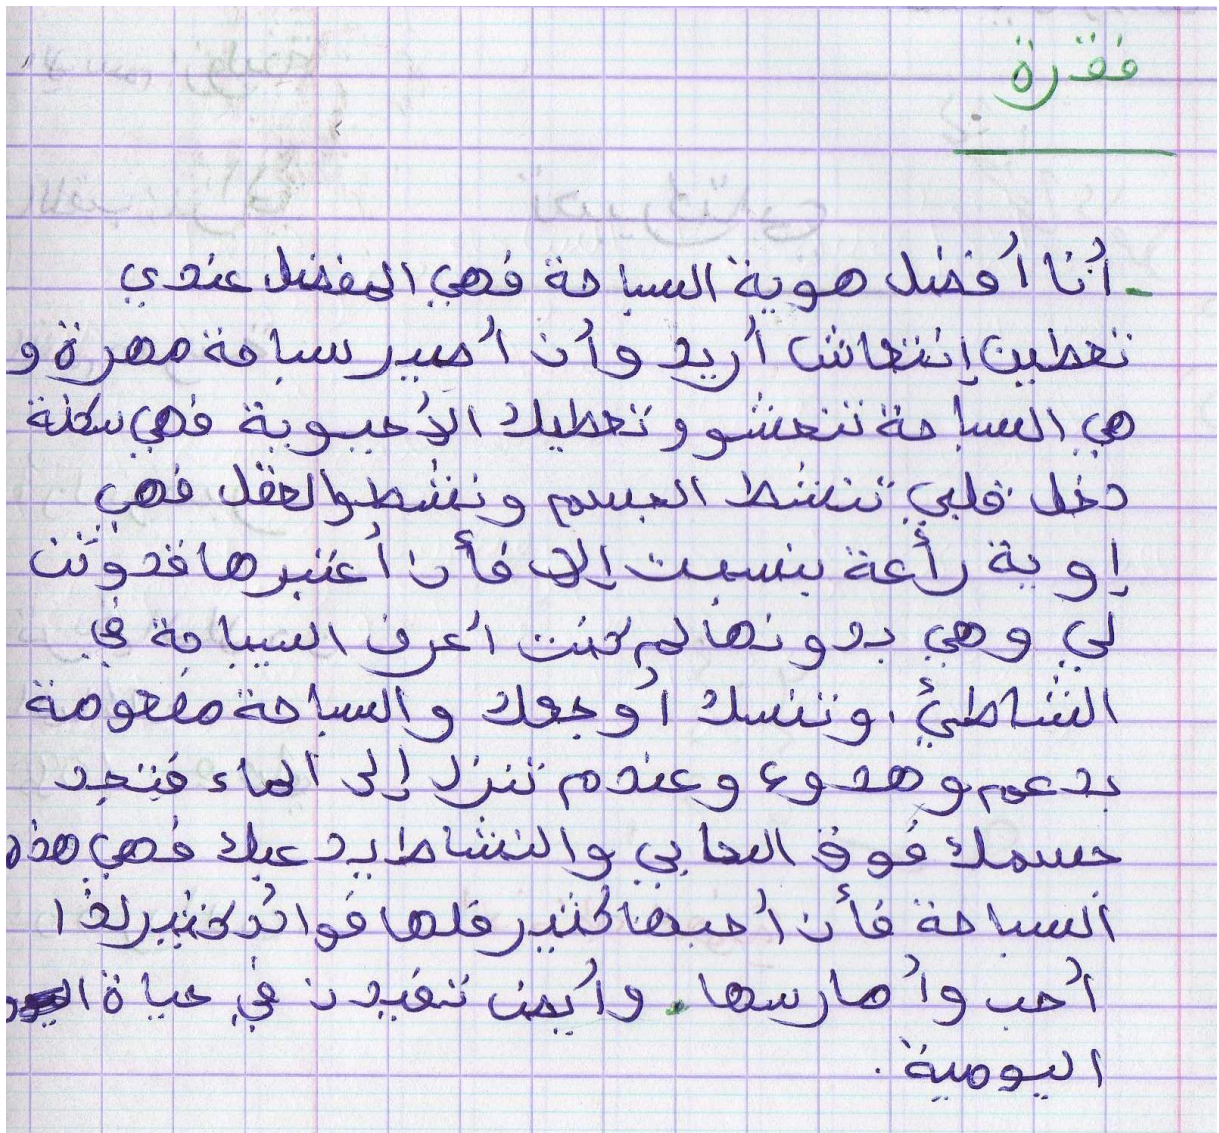 فقرة
- أنا أفضل هوية السباحة فهي المفضل عندي
تعطين إنتعاش أريد وأن أصير سباحة مهرة و
هي السباحة تنعشو وتعطيك الأحبوبة فهي سكنة
دخل قلبي تنشط الجسم ونشط والعقل فهي
إوية رأعة بنسبت إلي فأن أعتبرها قدوتن
لي وهي بدونها لم كنت أعرف السباحة في
الشاطئ. وتنسك أوجعك والسباحة مفعومة
بدعم وهدوء وعندم تنزل إلى الماء فتجد
جسمك فوق السحابي والنشاط يدعبك فهي هذه
السباحة فأن أحبها كثير فلها فوائد كثير لذا
أحب وأمارسها. وأيضن تفيدن في حياة
اليومية.